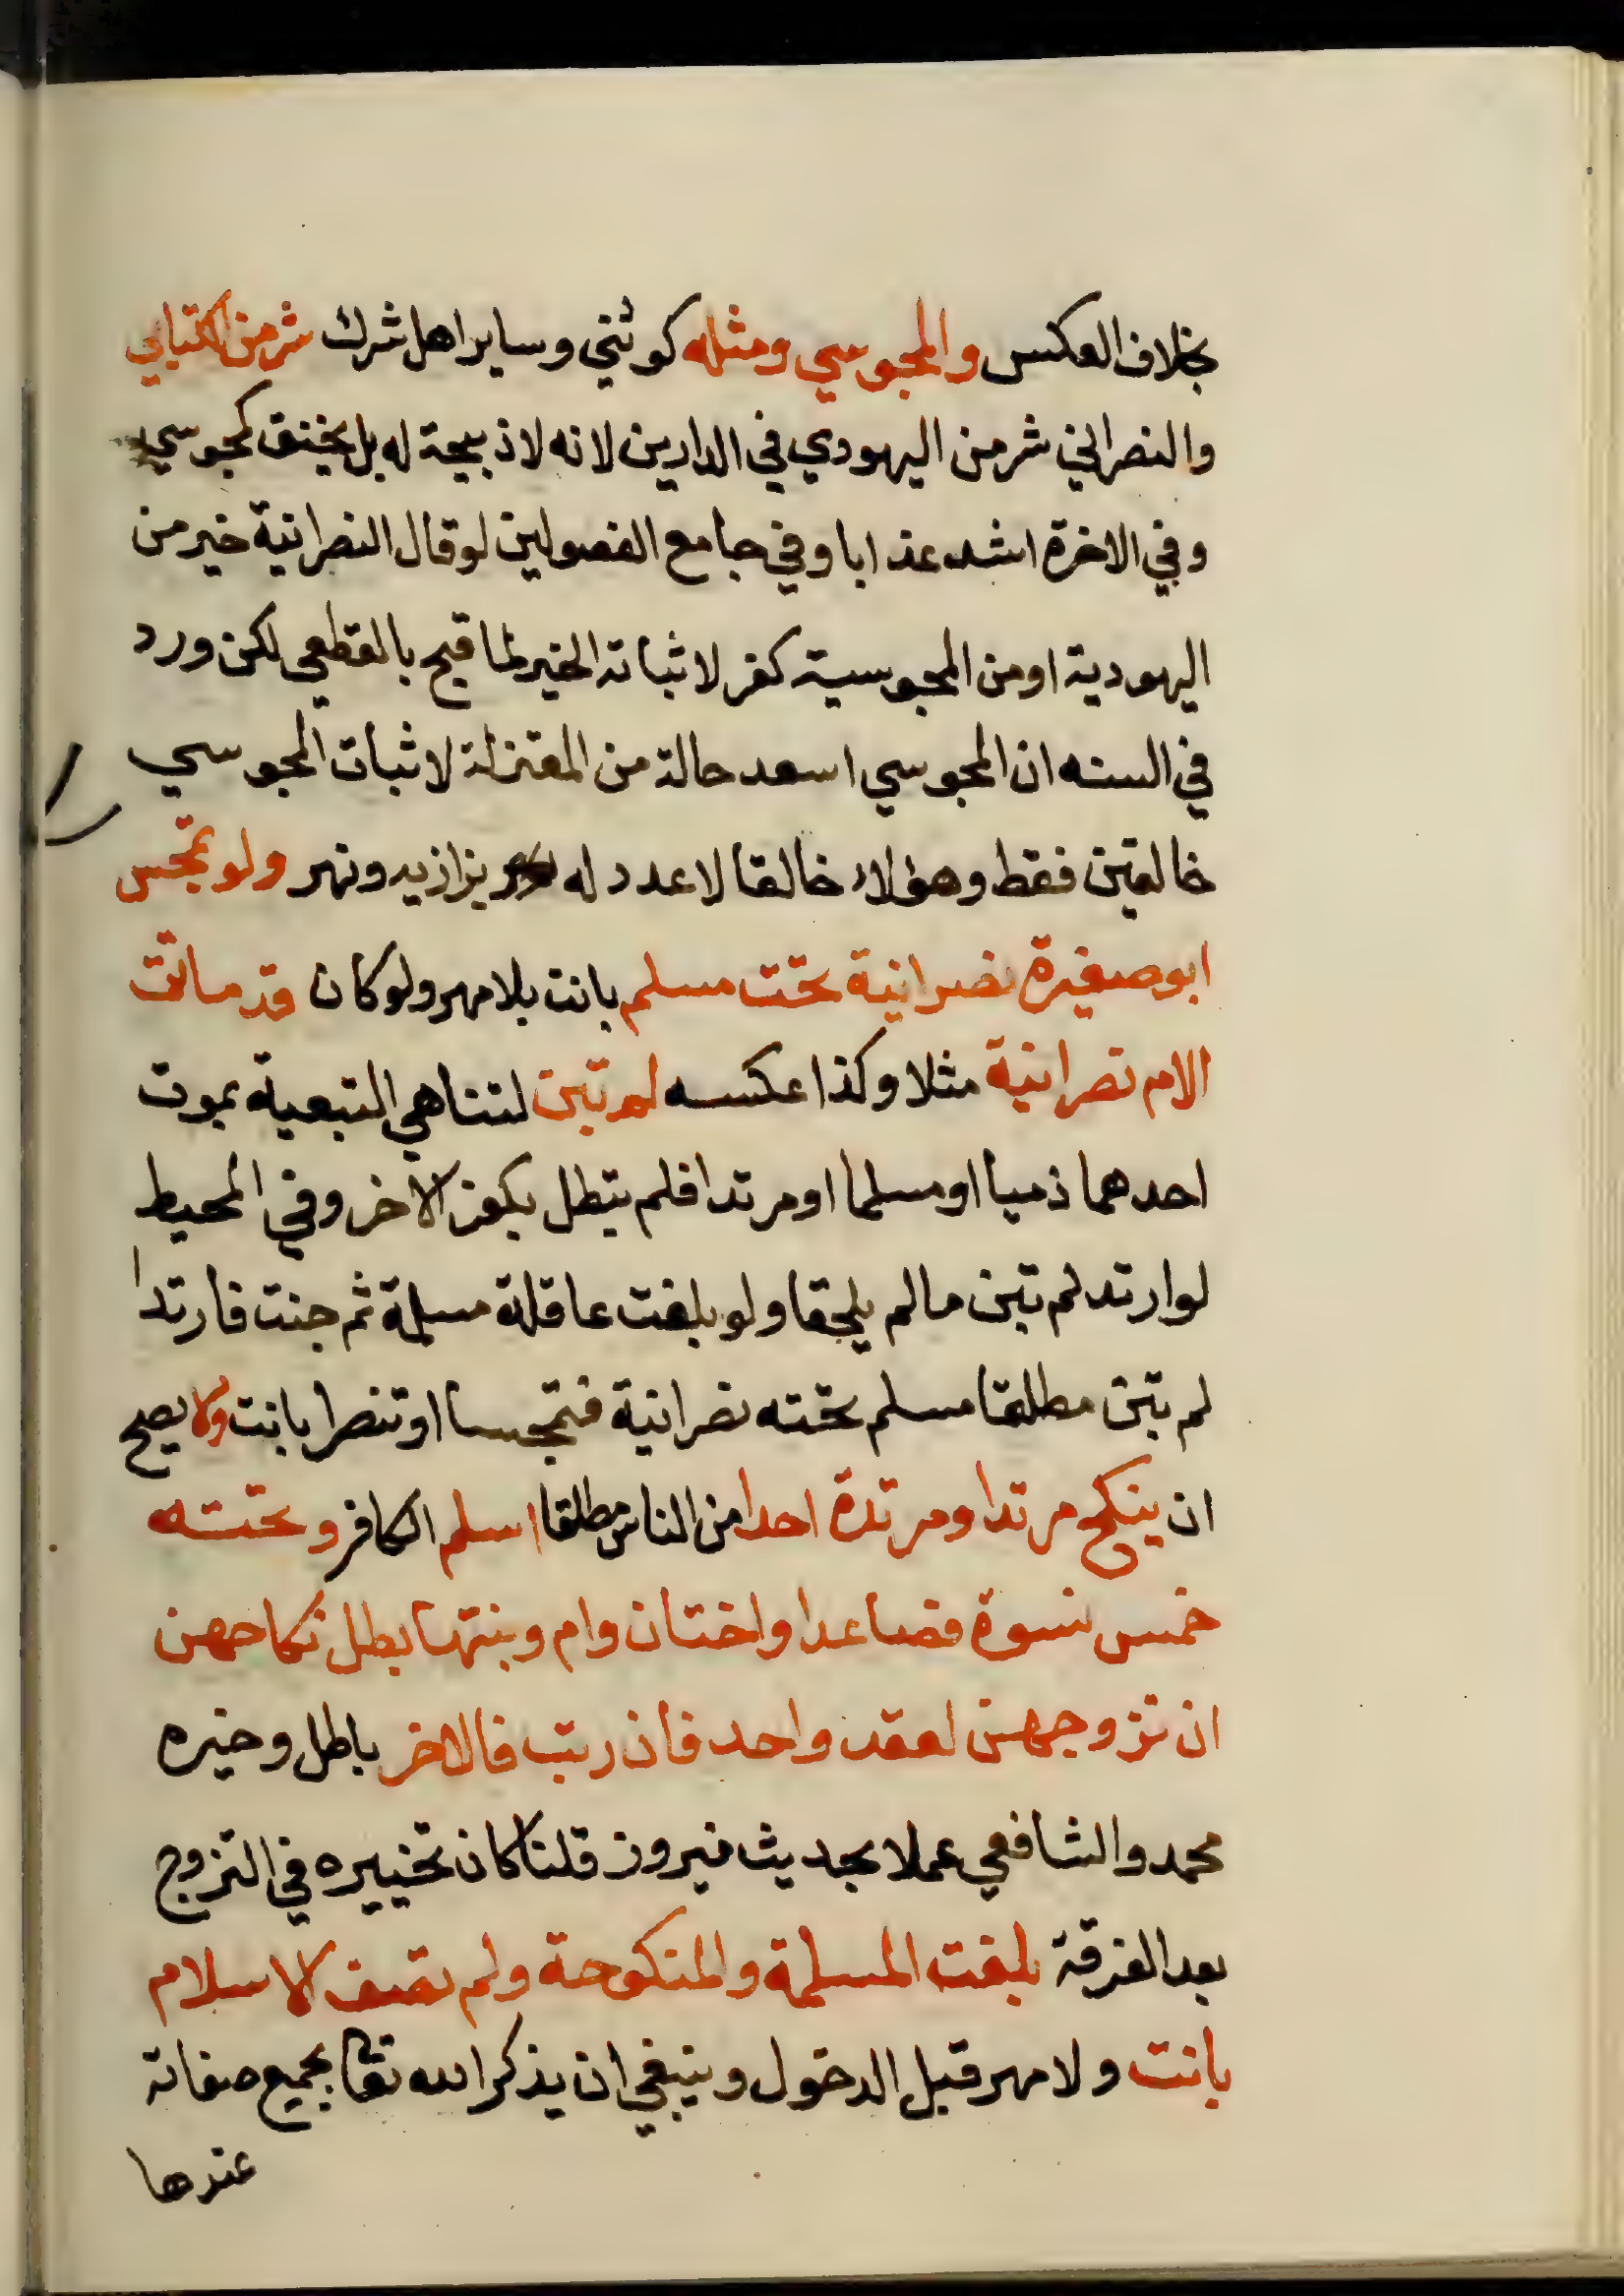 بخلاف العكس والمجوسي ومثله كوثني وساير اهل شرك شر من الكتابي
والنصراني شر من اليهودي في الدارين لانه لا ذبيحة له بل يخنق كمجوسي
وفي الاخرة اشد عذابا وفي جامع الفصولين لو قال النصرانية خير من
اليهودية او من المجوسية كفر لاثباته الخير لما قبح بالقطعي لكن ورد
في السنه ان المجوسي اسعد حالة من المعتزلة لاثبات المجوسي
خالقين فقط وهؤلاء خالقا لا عدد له بزازيه ونهر ولو تمجس
ابو صغيرة نصرانية تحت مسلم بانت بلا مهر ولو كان قد ماتت
الام نصرانية مثلا وكذا عكسه لم تبن لتناهي التبعية بموت
احدهما ذميا او مسلما او مرتدا فلم يتطل بكفر الاخر وفي المحيط
لو ارتد لم تبن ما لم يلحقا ولو بلغت عاقلة مسلمة ثم جنت فارتدا
لم تبن مطلقا مسلم تحته نصرانية فتمجسا او تنصرا بانت ولا يصح
ان ينكح مرتدا ومرتدة احدا من الناس مطلقا اسلم الكافر وتحته
خمس نسوة فصاعدا واختان وام وبنتها بطل نكاحهن
ان تزوجهن لعقد واحد فان رتب فالاخر باطل وخيره
محمد والشافعي عملا بحديث فيروز قلنا كان تخييره في التزوج
بعد الفرقة بلغت المسلمة والمنكوحة ولم تصف الاسلام
بانت ولا مهر قبل الدخول وينبغي ان يذكر الله تعا بجميع صفاته
عندها